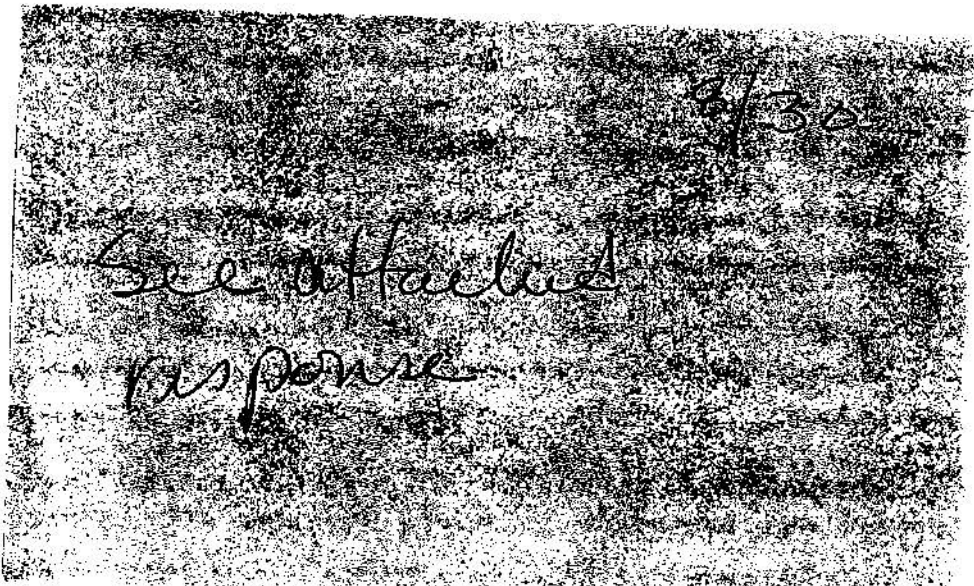 3/30
See attached
response